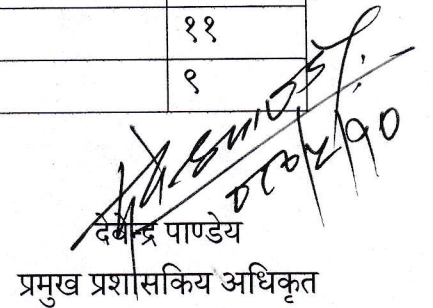 ११
९
देवेन्द्र पाण्डेय
प्रमुख प्रशासकिय अधिकृत